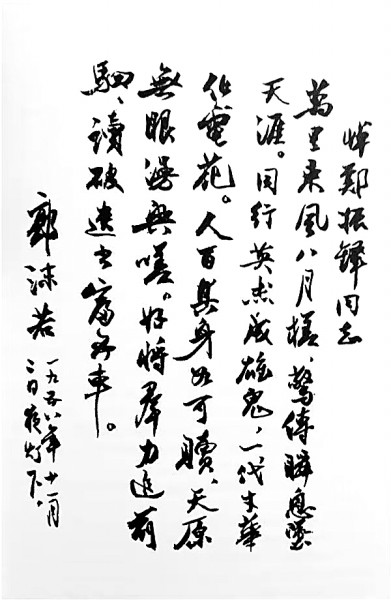 悼鄭振鐸同志
萬里東風八月槎、驚傳瞬息墜
天涯。同行英杰成雄鬼，一代才華
化電花。人百其身如可贖、天原
無眼漫興嗟。好將羣力追前
駟、讀破遺书富五車。
郭沫若
一九五八年十一月
二日夜灯下